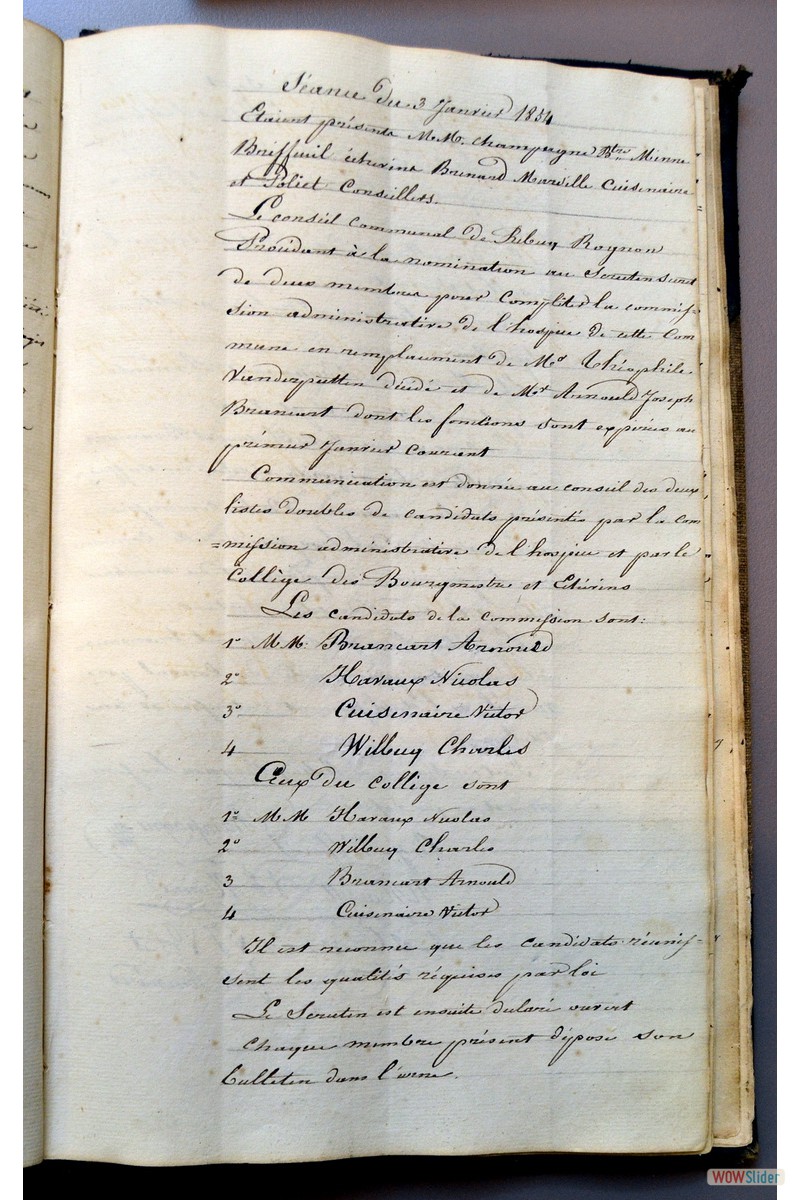 Séance du 3 Janvier 1854
Etaient présents M.M. Champagne Minne
Briffeuil échevins Brunard Marville Cuisenaire
et Poliet Conseillers.
Le conseil communal de Rebecq Rognon
Procédant à la nomination au Scrutin secret
de deux membres pour complèter la commis-
sion administrative de l'hospice de cette Com
mune en remplacement de Mr Théophile
Vanderputten décédé et de Mr Arnould Joseph
Brancart dont les fonctions sont expirées au
prémier Janvier courant
Communication est donnée au conseil des deux
listes doubles de candidats présentés par la com
=mission administrative de l'hospice et par le
Collège des Bourgmestre et Echevins
Les candidats de la commission sont:
1° MM: Brancart Arnould
2° Havaux Nicolas
3° Cuisenaire Victor
4 Wilbuy Charles
Ceux du collège sont
1° MM Havaux Nicolas
2° Wilbuy Charles
3 Brancart Arnould
4 Cuisenaire Victor
Il est reconnu que les candidats réunis=
sent les qualités réquises par loi
Le Scrutin est ensuite déclaré ouvert
Chaque membre présent dépose son
bulletin dans l'urne.
WOWSlider